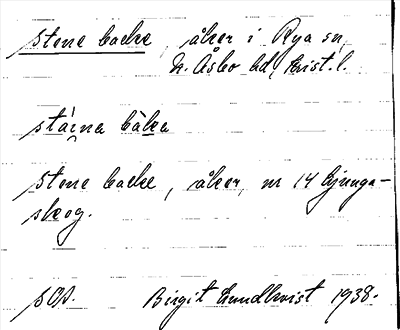 stene backe, åker i Rya sn,
N. Åsbo hd, Krist. l.
stáina bàka
stene backe, åker, nr 14 Ljunga-
skog.
SOS. Birgit Lundkvist 1938.